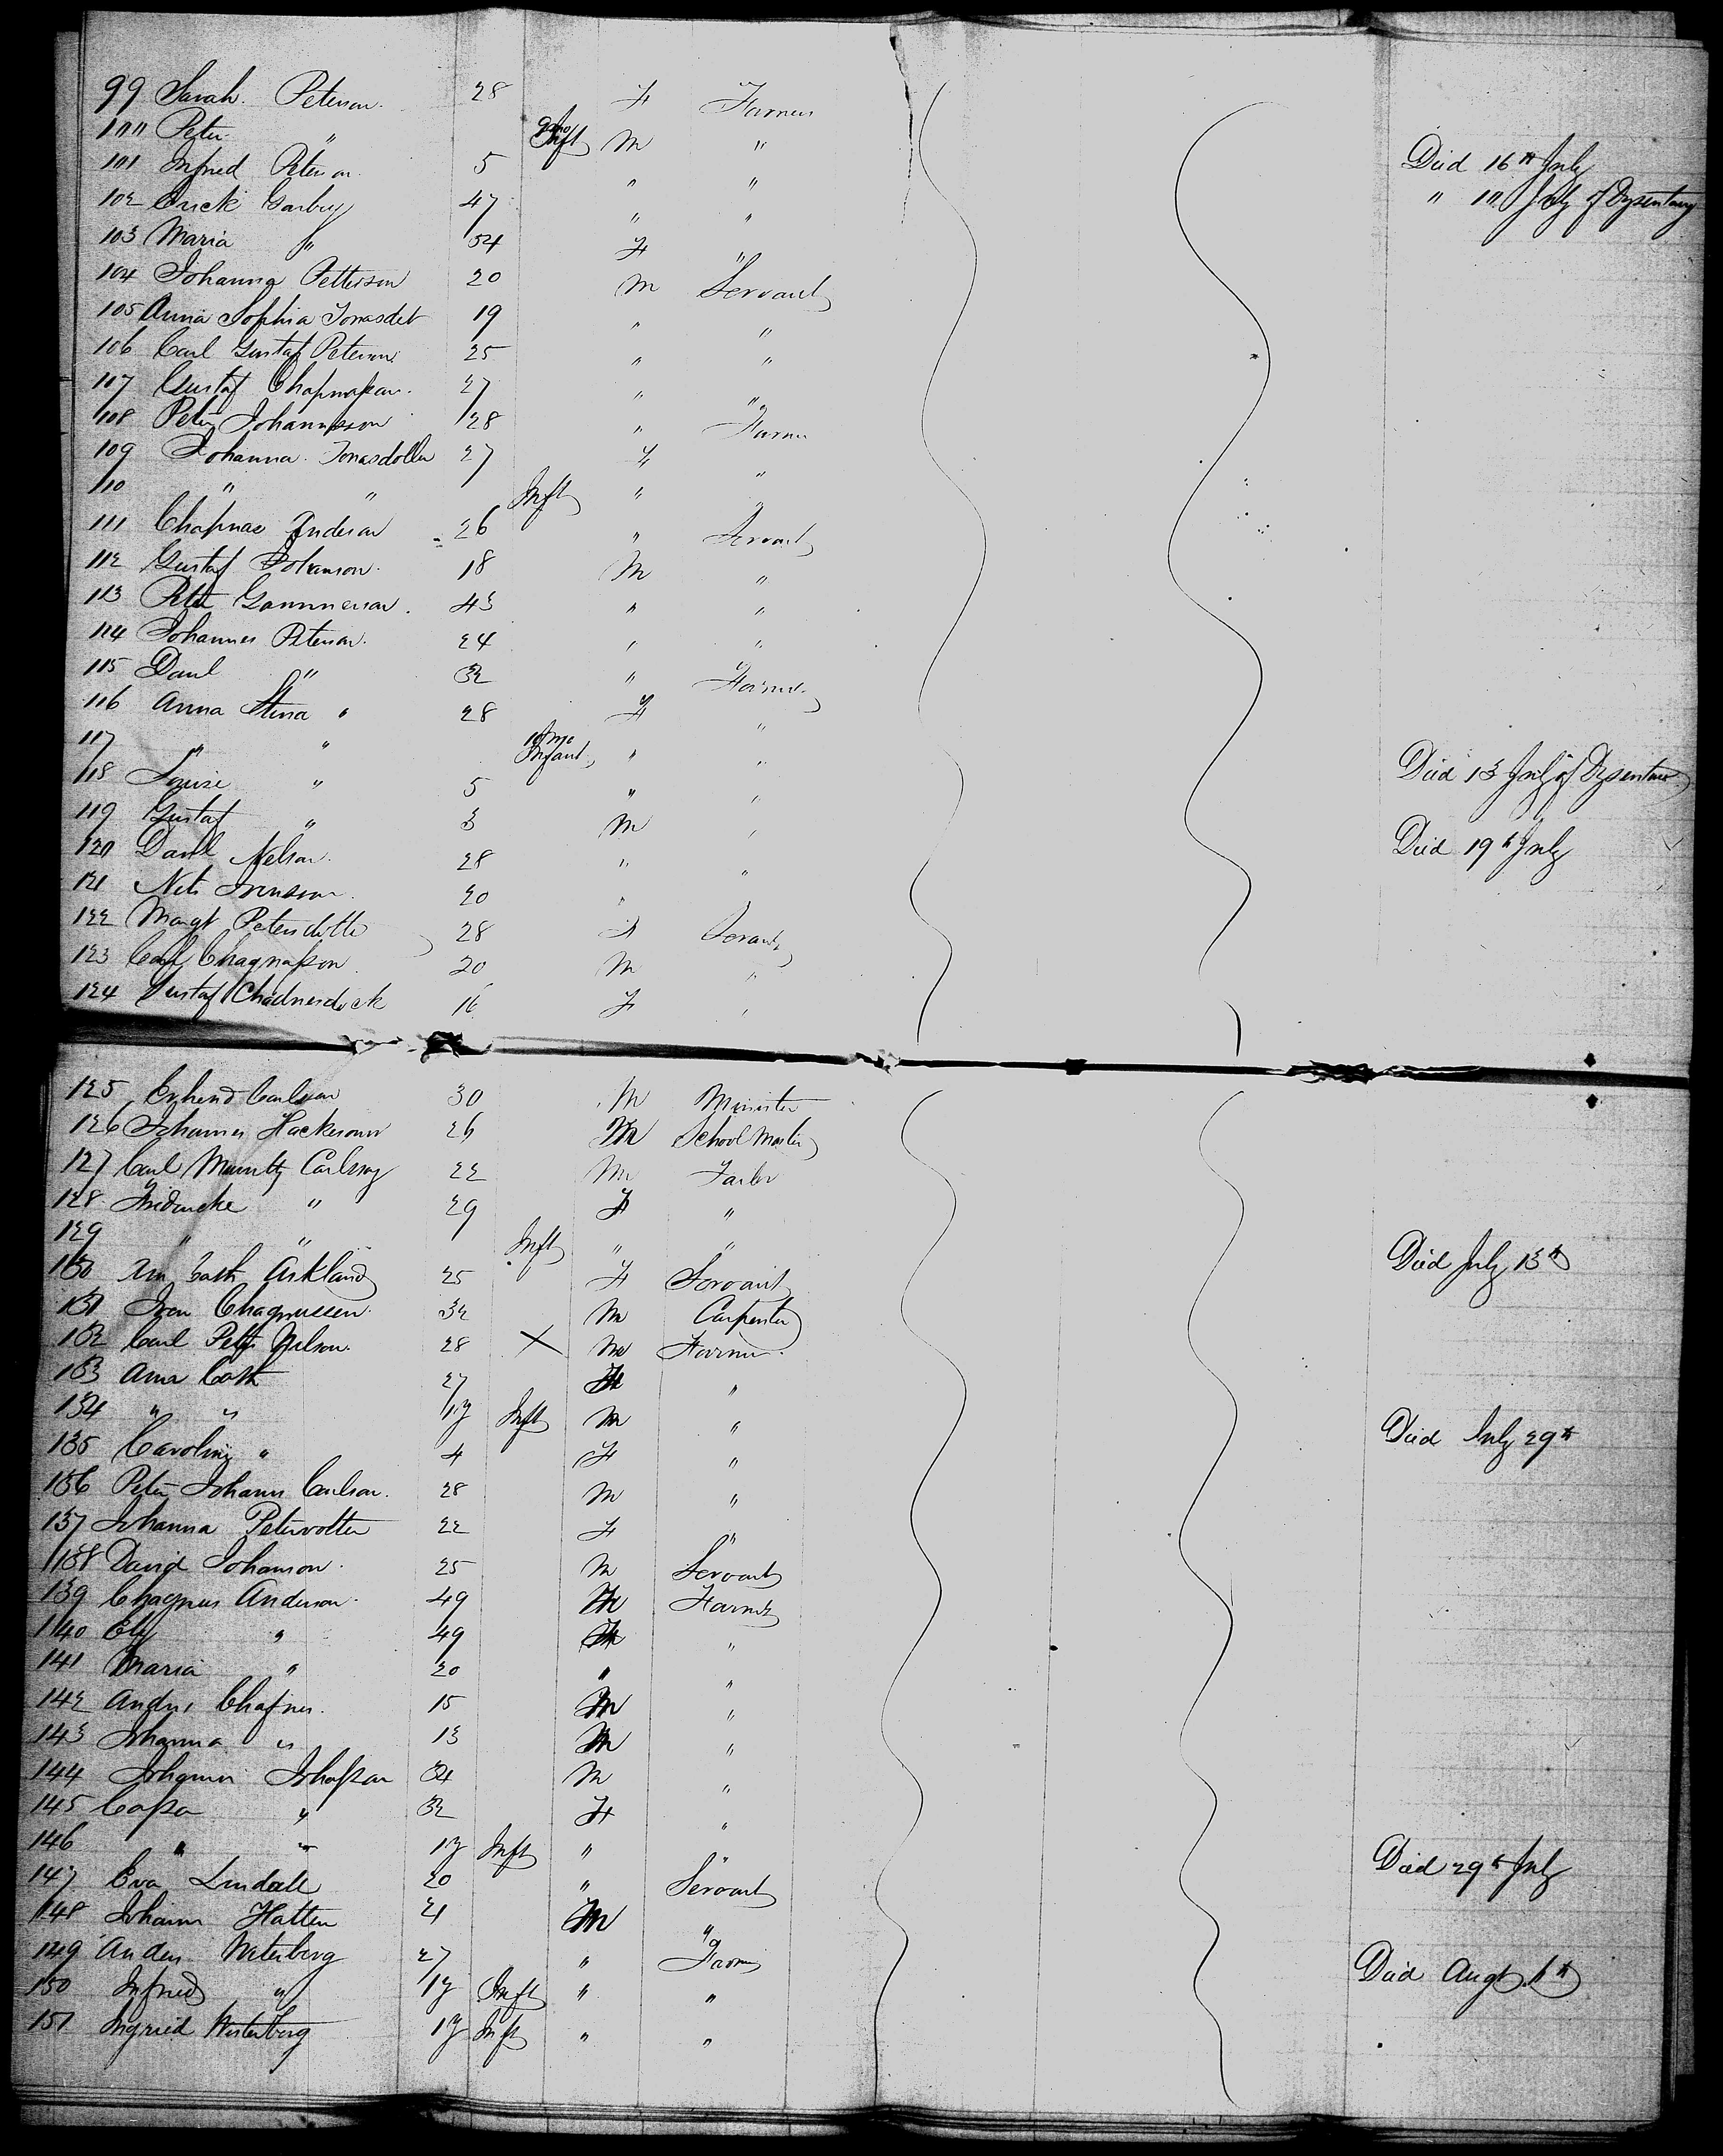 99 Sarah Peterson 28 F Farmer
100 Peter " 9 mo Inft M "
101 Infred Peterson 5 " " Died 16th July
102 Erick Garberg 47 " " " 10 July of Dysentary
103 Maria " 54 F "
104 Johanna Petterson 20 M Servant
105 Anna Sophia Jonasdet 19 " "
106 Carl Gustaf Peterson 25 " "
107 Gustaf 27 " "
108 Peter Johannsson 28 " Farmer
109 Johanna Jonasdotter 27 F "
110 " " Inft " "
111 Anderson 26 " Servant
112 Gustaf Johanson 18 M "
113 Peter 43 " "
114 Johannes Peterson 24 " "
115 Danl " 32 " Farmer
116 Anna Stina " 28 F "
117 " " 10 mo Infant " "
118 Louise " 5 " " Died 13 July of Dysentary
119 Gustaf " 3 M "
120 Danl Nelson 28 " " Died 19th July
121 Nils 20 "
122 Margt Petersdotter 28 F Servant
123 Carl Chagnasson 20 M "
124 Gustaf 16 F "
125 Carlson 30 M Minister
126 Johannes Hackerson 26 M School Master
127 Carl Carlson 22 M Tailor
128 " 29 F "
129 " " Inft " " Died July 13th
130 Ann Cath Askland 25 F Servant
131 32 M Carpenter
132 Carl Peter Nilson 28 X M Farmer
133 Anna Cath 27 F "
134 " " 1y Inft M " Died July 29th
135 Caroline " 4 F "
136 Peter Johann Carlson 28 M "
137 Johanna 22 F "
138 David Johanson 25 M Servant
139 Chagnus Anderson 49 M Farmer
140 " 49 F "
141 Maria " 20 " "
142 15 M "
143 Johanna " 13 M "
144 34 M "
145 Cassa " 32 F "
146 " " 1y Inft " " Died 29th July
147 Eva Lindall 20 " Servant
148 Johann Hatten 21 M "
149 Anders Westerberg 27 " Farmer Died Augt
150 Infried " 1y Inft " "
151 Ingried Westerberg 1y Inft " "